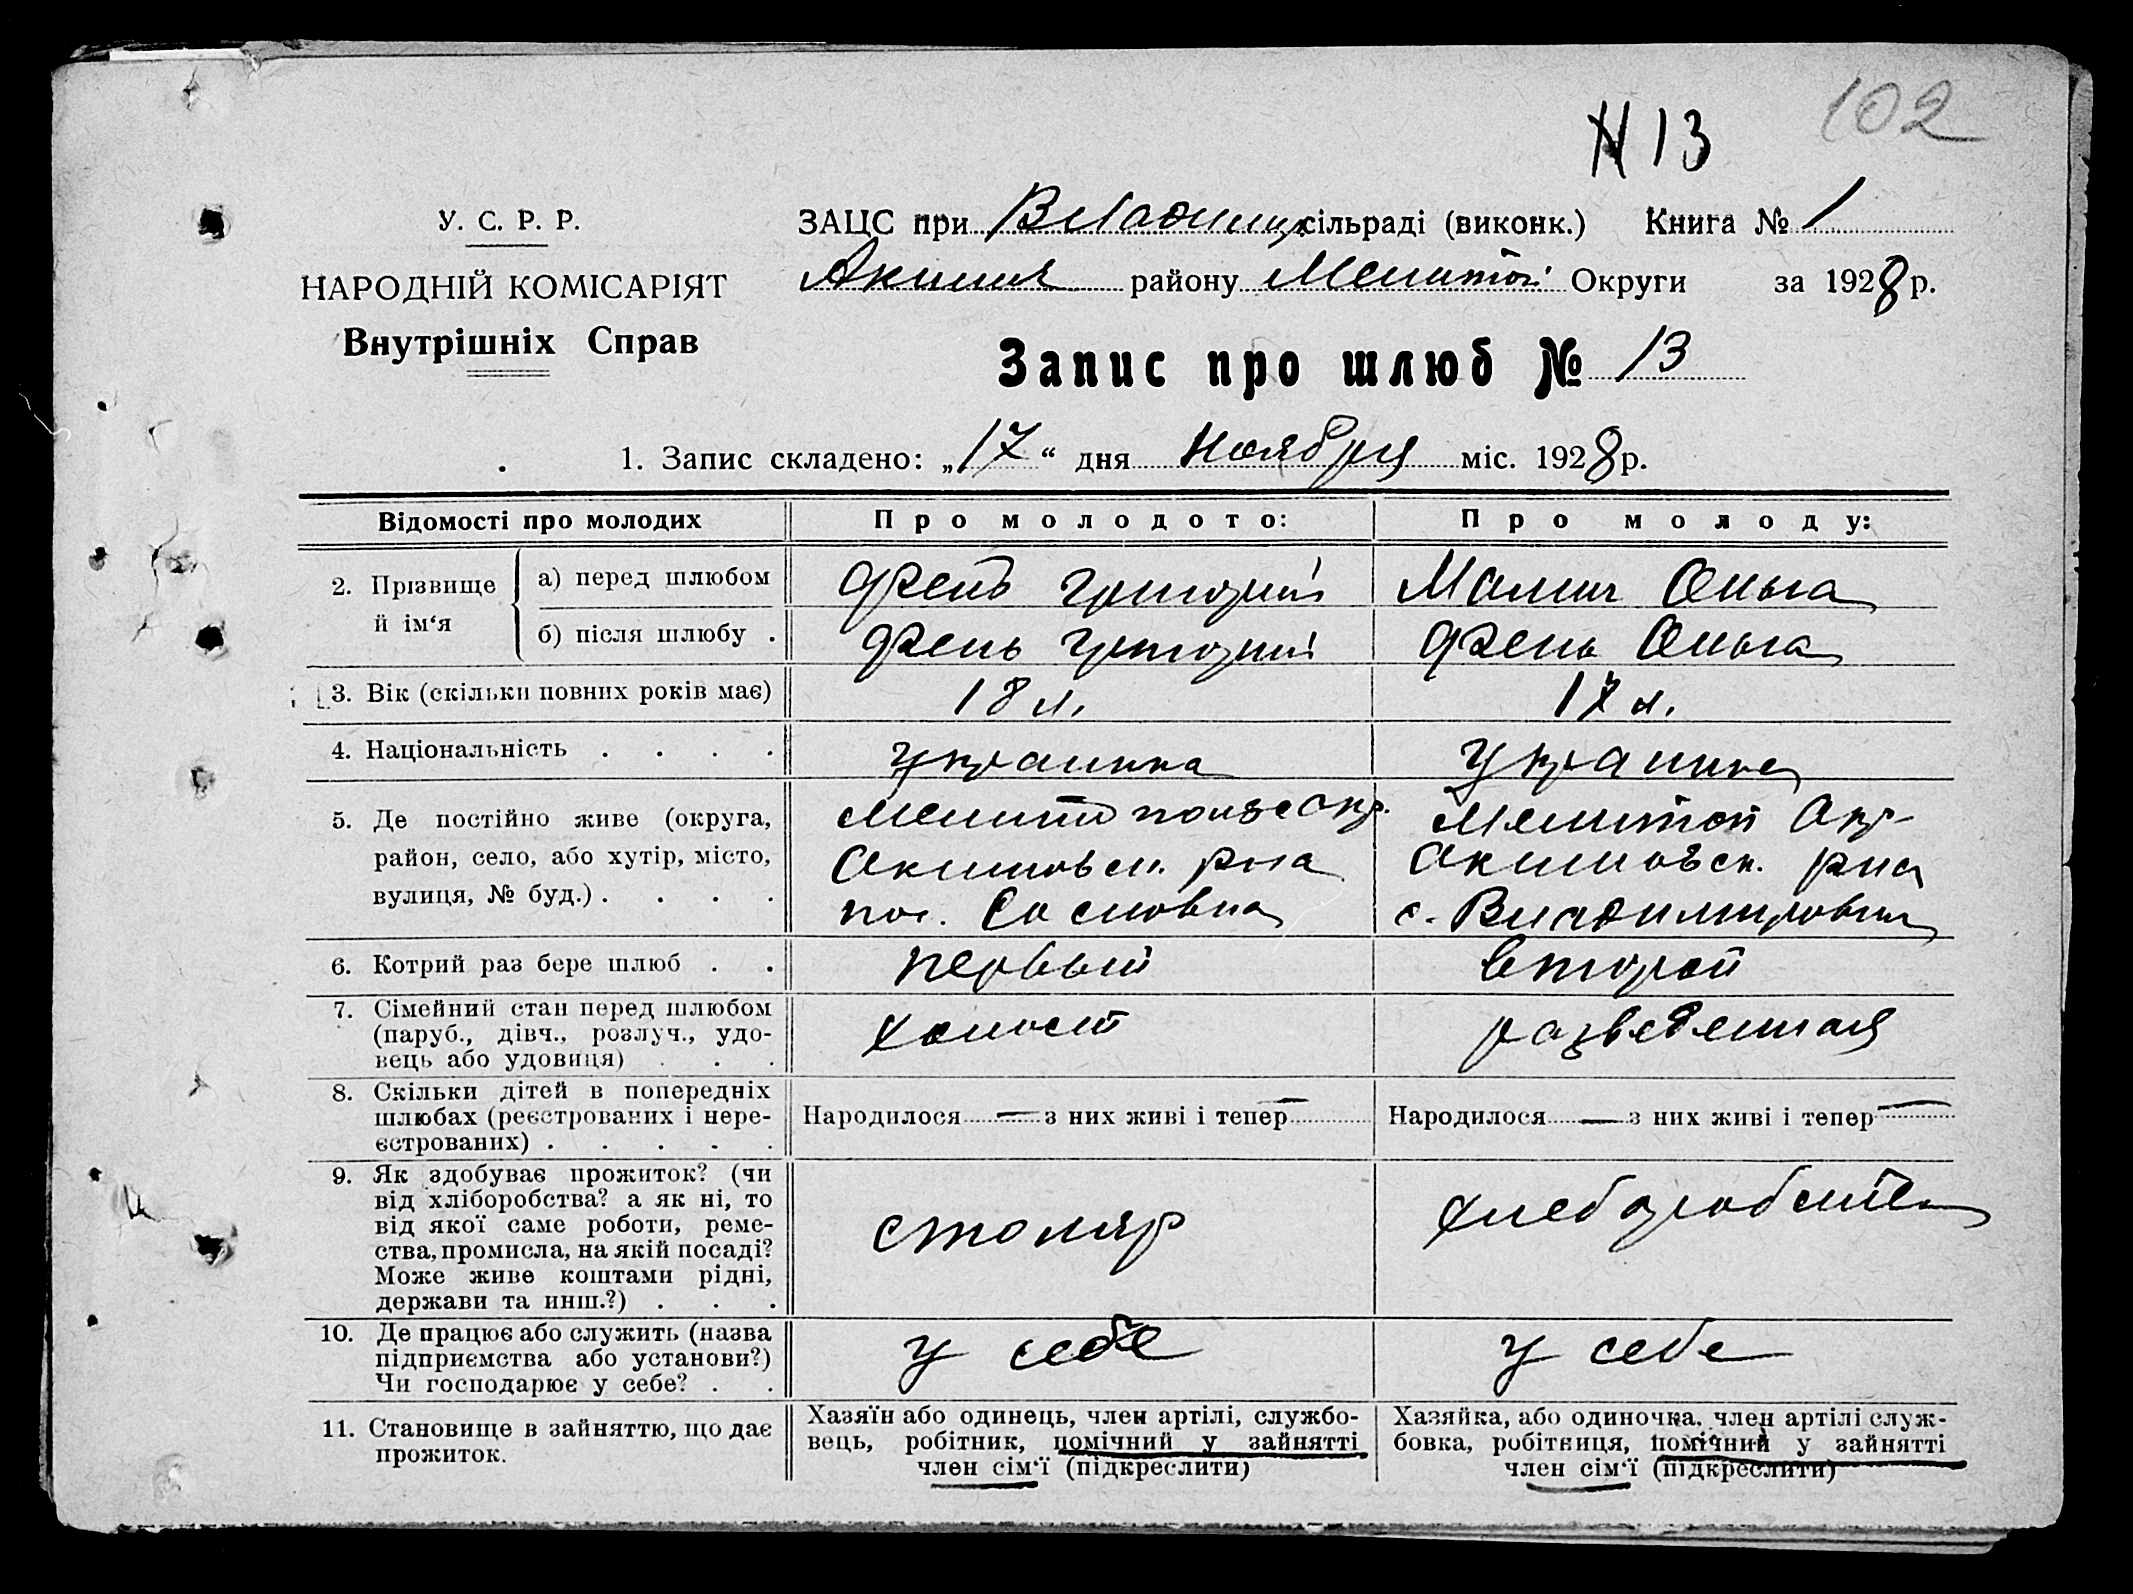 102
N 13
У. С. Р. Р.
НАРОДНІЙ КОМІСАРІЯТ
Внутрішніх Справ
ЗАЦС при Владимир сільраді (виконк.) Книга № 1
Аким району Мелитоп Округи за 1928 р.
Запис про шлюб № 13
1. Запис складено: „17“ дня Ноября міс. 1928 р.
Відомості про молодих
Про молодого:
Про молоду:
2. Прізвище й ім‘я
а) перед шлюбом
Григорий
Ольга
б) після шлюбу .
Григорий
Ольга
3. Вік (скільки повних років має)
18 л.
17 л.
4. Національність . . . .
украинка
украинка
5. Де постійно живе (округа,
район, село, або хутір, місто,
вулиця, № буд.) . . . .
Мелитопольс Окр.
Акимовск. рна
пос. Сосновка
Мелитоп Окр
Акимовск. рна
с. Владимировка
6. Котрий раз бере шлюб . .
первый
второй
7. Сімейний стан перед шлюбом
(паруб., дівч., розлуч., удо-
вець або удовиця) . . .
холост
разведенная
8. Скільки дітей в попередніх
шлюбах (реєстрованих і нере-
єстрованих) . . . . .
Народилося — з них живі і тепер —
Народилося — з них живі і тепер —
9. Як здобуває прожиток? (чи
від хліборобства? а як ні, то
від якої саме роботи, реме-
ства, промисла, на якій посаді?
Може живе коштами рідні,
держави та инш.?) . . .
столяр
10. Де працює або служить (назва
підприємства або установи?)
Чи господарює у себе? . .
у себе
у себе
11. Становище в зайняттю, що дає
прожиток.
Хазяїн або одинець, член артілі, службо-
вець, робітник, помічний у зайнятті
член сім‘ї (підкреслити)
Хазяйка, або одиночка, член артілі служ-
бовка, робітниця, помічний у зайнятті
член сім‘ї (підкреслити)